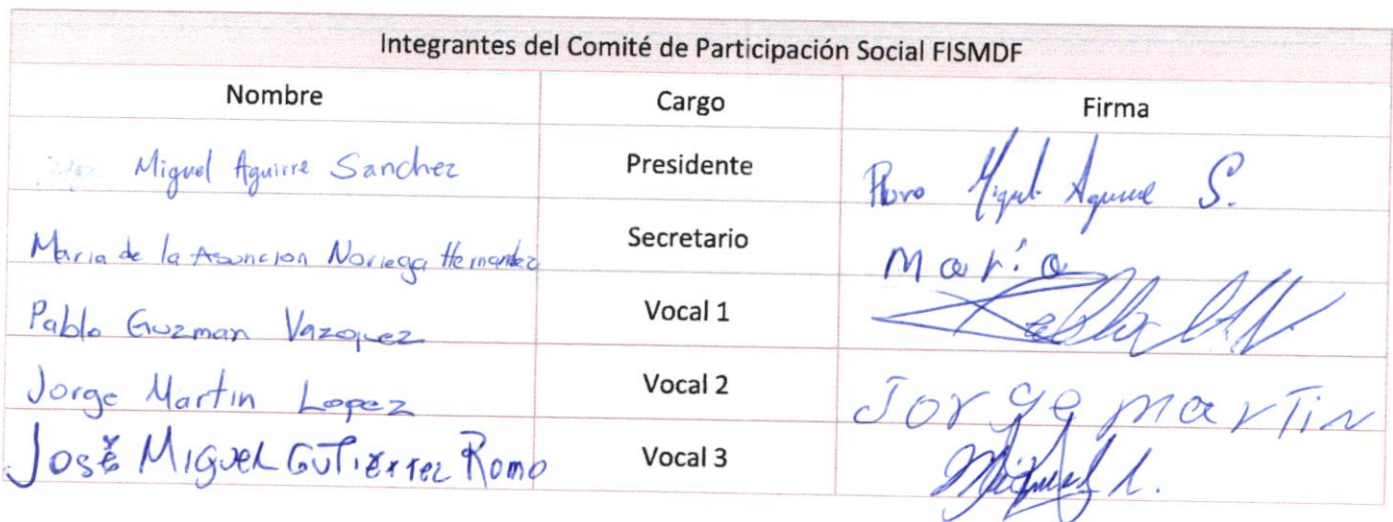 Integrantes del Comité de Participación Social FISMDF
Nombre Cargo Firma
Miguel Aguirre Sanchez Presidente Miguel Aguirre S.
Maria de la Asuncion Noriega Hernandez Secretario María
Pablo Guzman Vazquez Vocal 1
Jorge Martin Lopez Vocal 2 Jorge martin
José Miguel Gutiérrez Romo Vocal 3